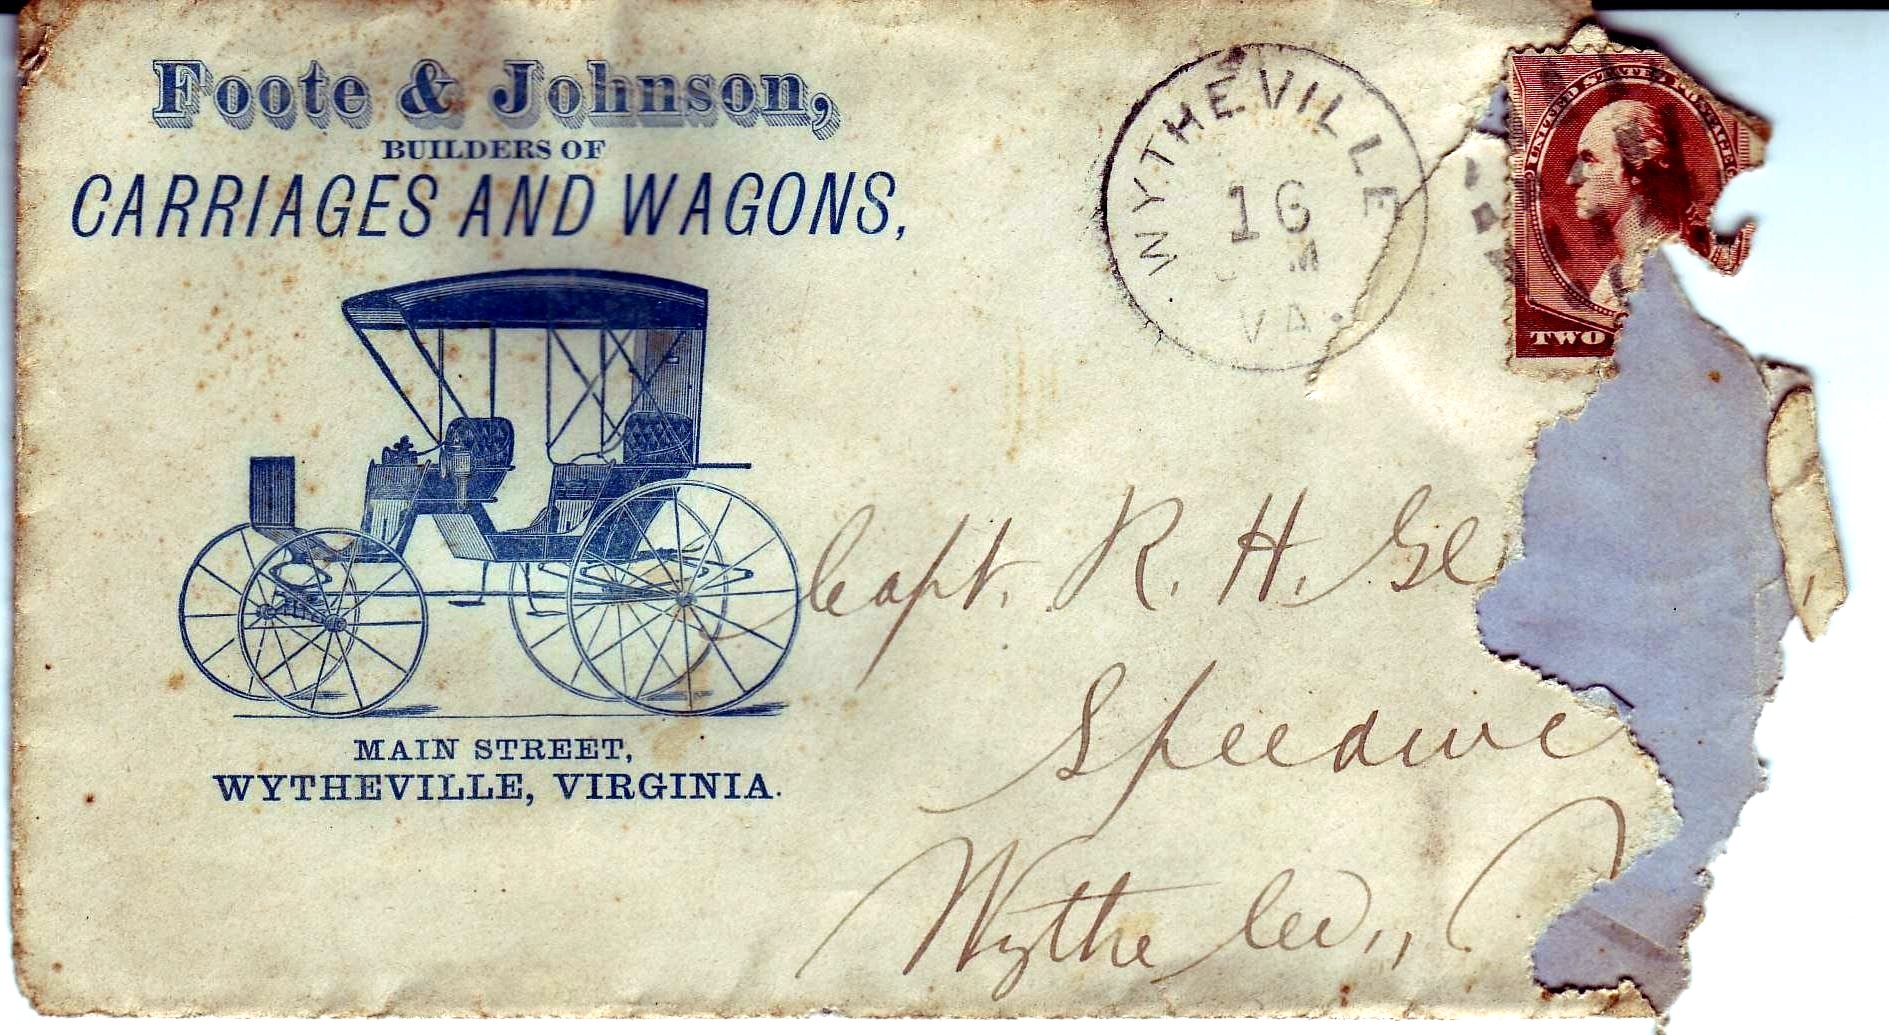 Foote & Johnson,
BUILDERS OF
CARRIAGES AND WAGONS,
MAIN STREET,
WYTHEVILLE, VIRGINIA.
WYTHEVILLE
16
M
VA.
UNITED STATES POSTAGE
TWO
Capt. R. H. Gl
Speedwe
Wythe Co.,,